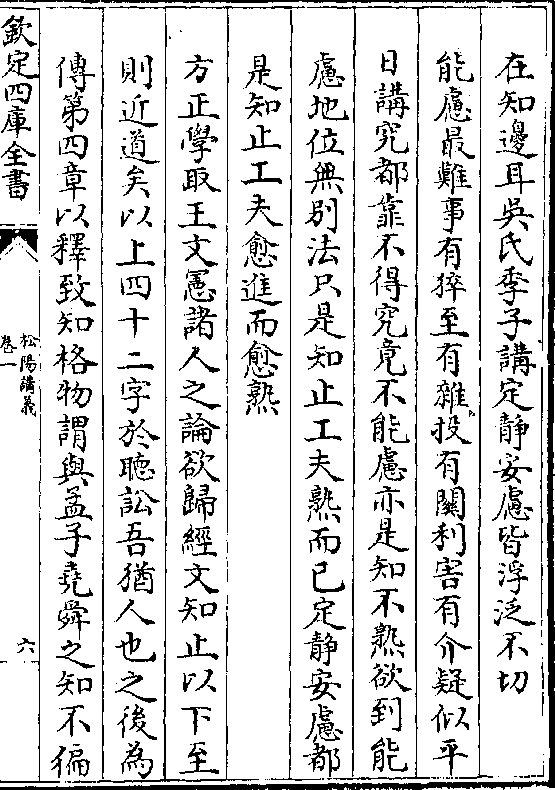 在知邊耳吳氏季子講定靜安慮皆浮泛不切
能慮最難事有猝至有雜投有關利害有介疑似平
日講究都靠不得究竟不能慮亦是知不熟欲到能
慮地位無別法只是知止工夫熟而已定靜安慮都
是知止工夫愈進而愈熟
方正學取王文憲諸人之論欲歸經文知止以下至
則近道矣以上四十二字於聽訟吾猶人也之後為
傳第四章以釋致知格物謂與孟子堯舜之知不徧
欽定四庫全書
松陽講義
卷一
六